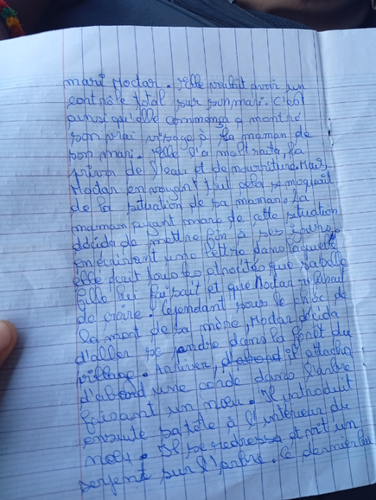 mari Modar. Elle voulait avoir un
contrôle total sur son mari. C'est
ainsi qu'elle commença a montré
son vrai visage à la maman de
son mari. Elle l'a maltraita, la
priva de l'eau et de nourriture. Mais
Modar en voyant tout cela se moquait
de la situation de sa maman. La
maman ayant marre de cette situation
décida de mettre fin à ses jours
en écrivant une lettre dans laquelle
elle disait tous les atrocités que sa belle
fille lui faisait et que Modar refusait
de croire. Cependant sous le choc de
la mort de sa mère, Modar décida
d'aller se pendre dans la forêt du
village. Arriver, il attacha
d'abord une corde dans l'arbre
faisant un nœu. Il introduit
ensuite sa tête à l'intérieur du
nœu. Il se redressa et vit un
serpent sur l'arbre. Ce dernier lui